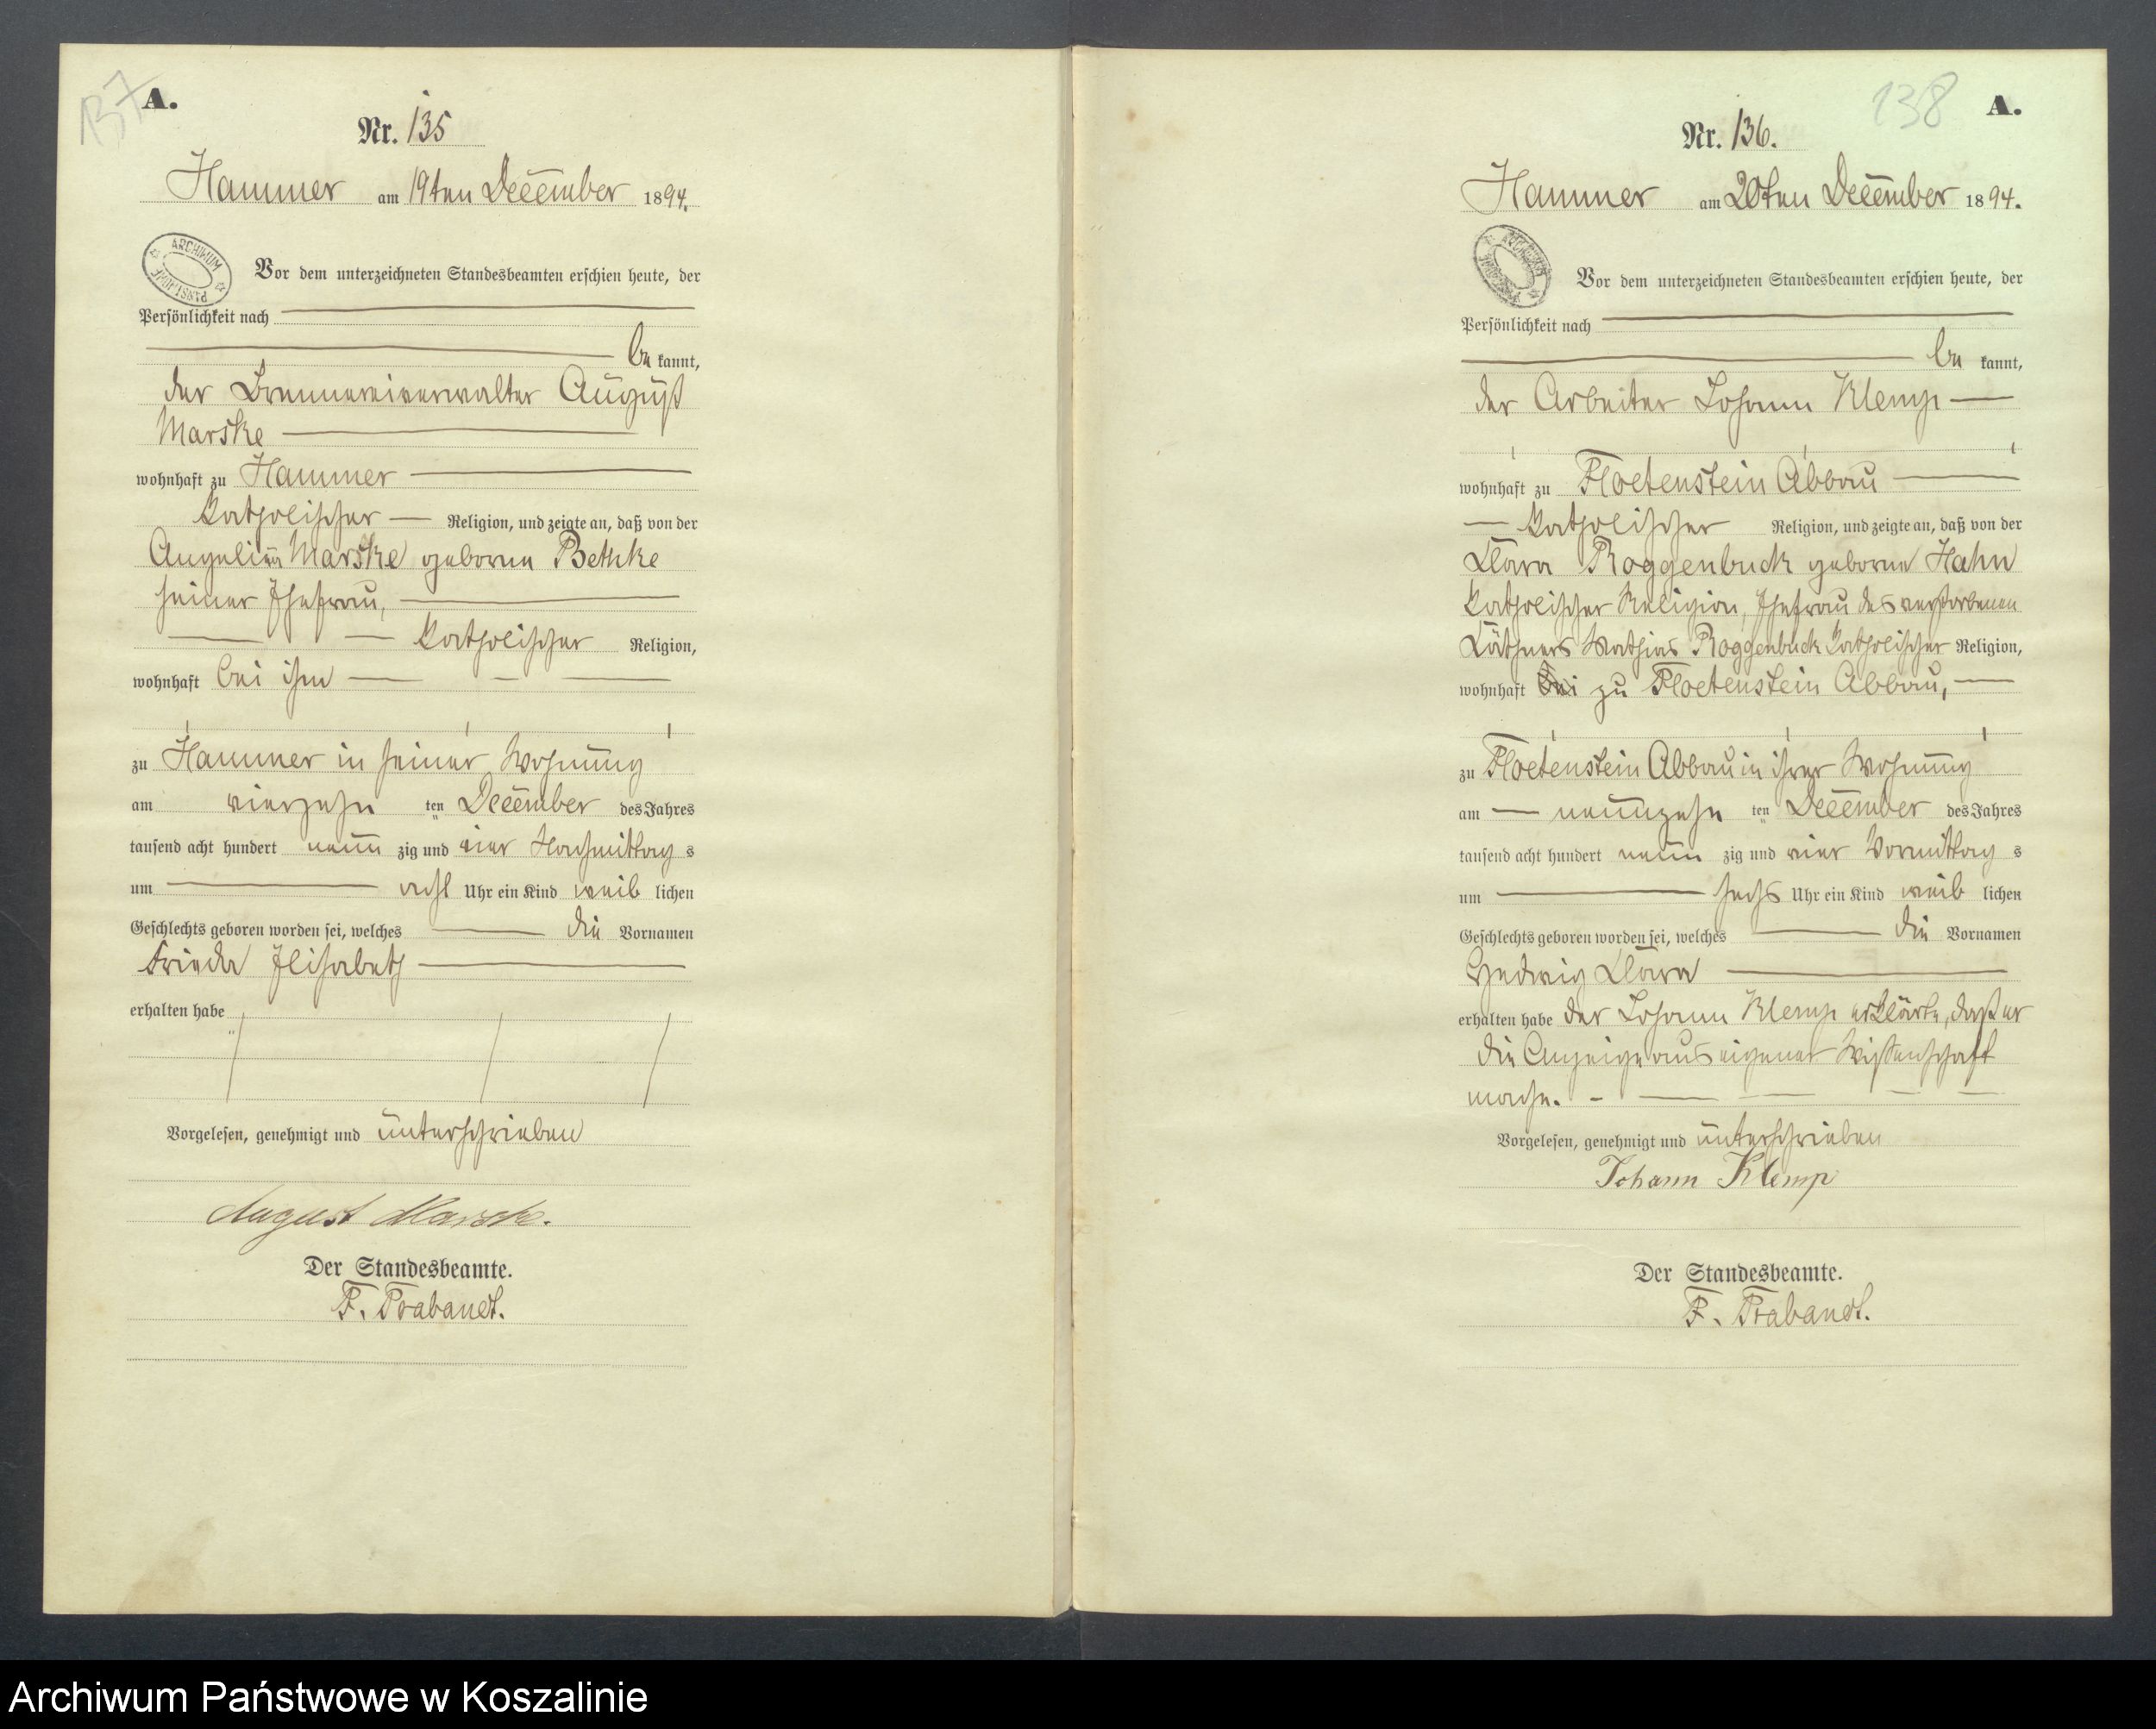 137
A.
Nr. 135
Hammer am 19ten December 1894.
ARCHIWUM PAŃSTWOWE
Vor dem unterzeichneten Standesbeamten erschien heute, der
Persönlichkeit nach
be kannt,
der Brennereiverwalter August
Marske
wohnhaft zu Hammer
katholischer Religion, und zeigte an, daß von der
Marske geborne Bethke
seiner Ehefrau,
katholischer Religion,
wohnhaft bei ihm
zu Hammer in seiner Wohnung
am vierzehn ten December des Jahres
tausend acht hundert neun zig und vier Nachmittag s
um acht Uhr ein Kind weib lichen
Geschlechts geboren worden sei, welches die Vornamen
Frieda Elisabeth
erhalten habe
Vorgelesen, genehmigt und unterschrieben
August Marske.
Der Standesbeamte.
F. Brabandt.
138
A.
Nr. 136.
Hammer am 20ten December 1894.
Vor dem unterzeichneten Standesbeamten erschien heute, der
Persönlichkeit nach
be kannt,
der Arbeiter Johann Klemp
wohnhaft zu Floetenstein Abbau
katholischer Religion, und zeigte an, daß von der
Clara Roggenbuck geborne Hahn
katholischer Religion, Ehefrau des verstorbenen
Käthners Mathias Roggenbuck katholischer Religion,
wohnhaft bei zu Floetenstein Abbau,
zu Floetenstein Abbau in ihrer Wohnung
am neunzehn ten December des Jahres
tausend acht hundert neun zig und vier Vormittag s
um sechs Uhr ein Kind weib lichen
Geschlechts geboren worden sei, welches die Vornamen
Hedwig Clara
erhalten habe der Johann Klemp erklärte, daß er
die Anzeige aus eigener Wissenschaft
mache.
Vorgelesen, genehmigt und unterschrieben
Johann Klemp
Der Standesbeamte.
F. Brabandt.
Archiwum Państwowe w Koszalinie